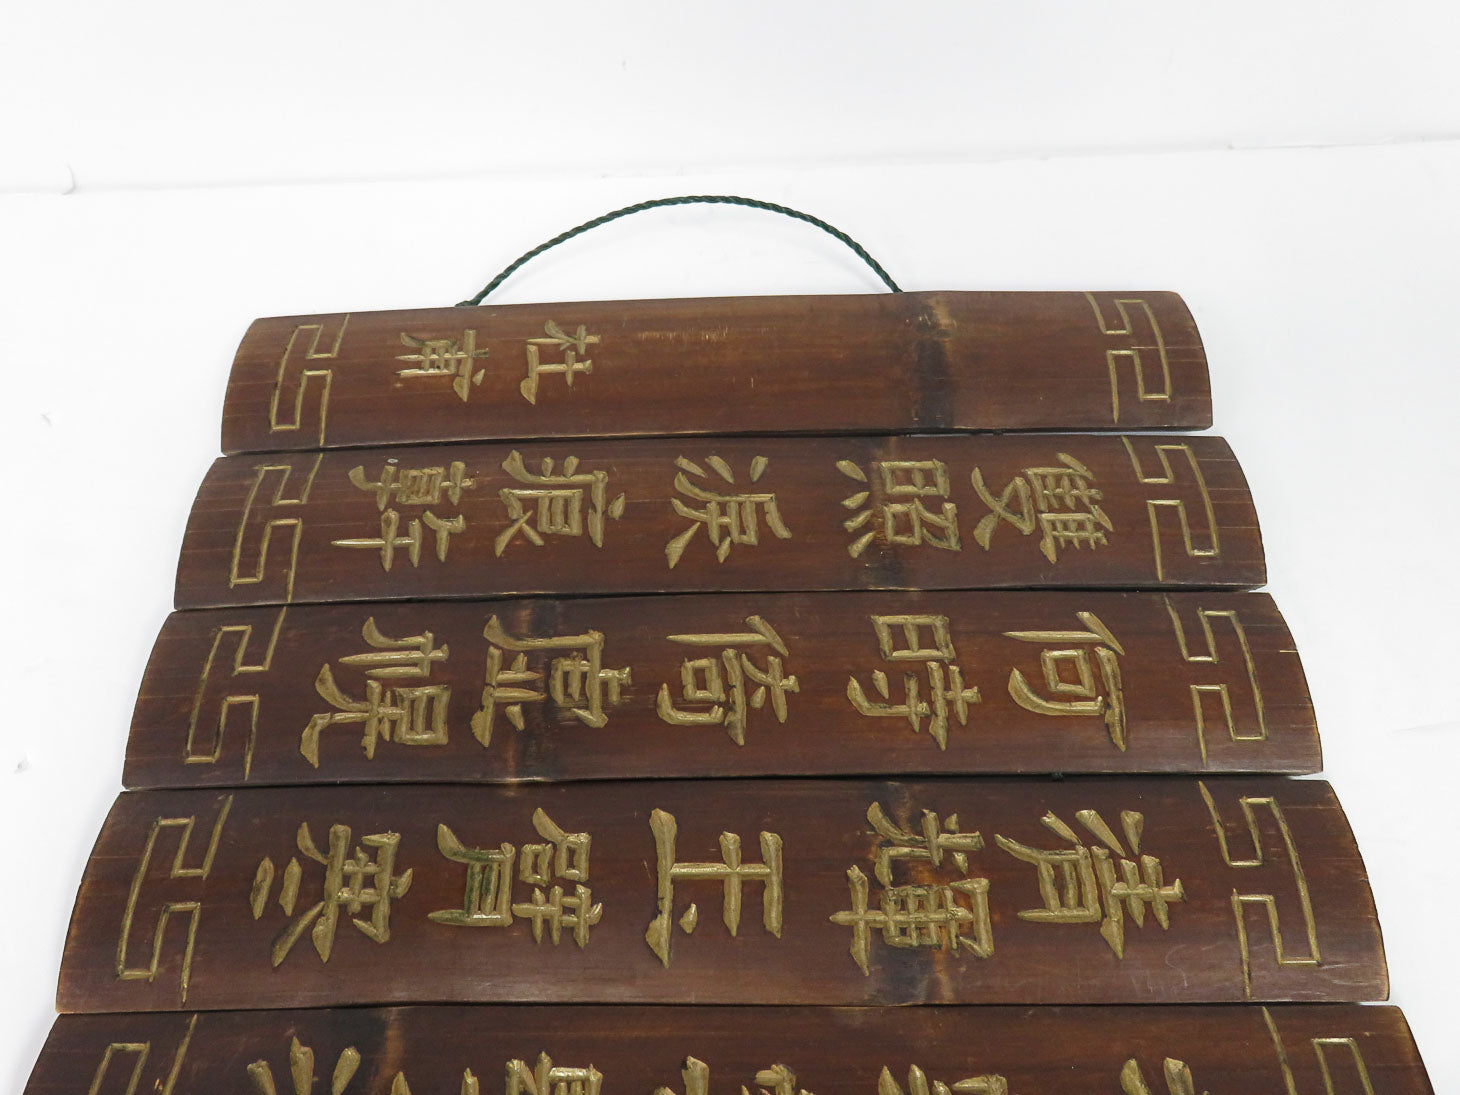 清輝玉臂寒
何時倚虛幌
雙照淚痕乾
杜甫